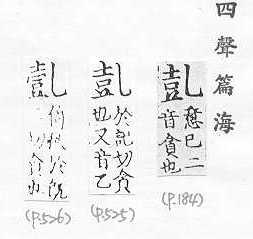 四聲篇海
亄
二
音貪也
(P.184)
亄
於記切貪
也又音乙
(P.525)
亄
於既
切貪也
(P.526)